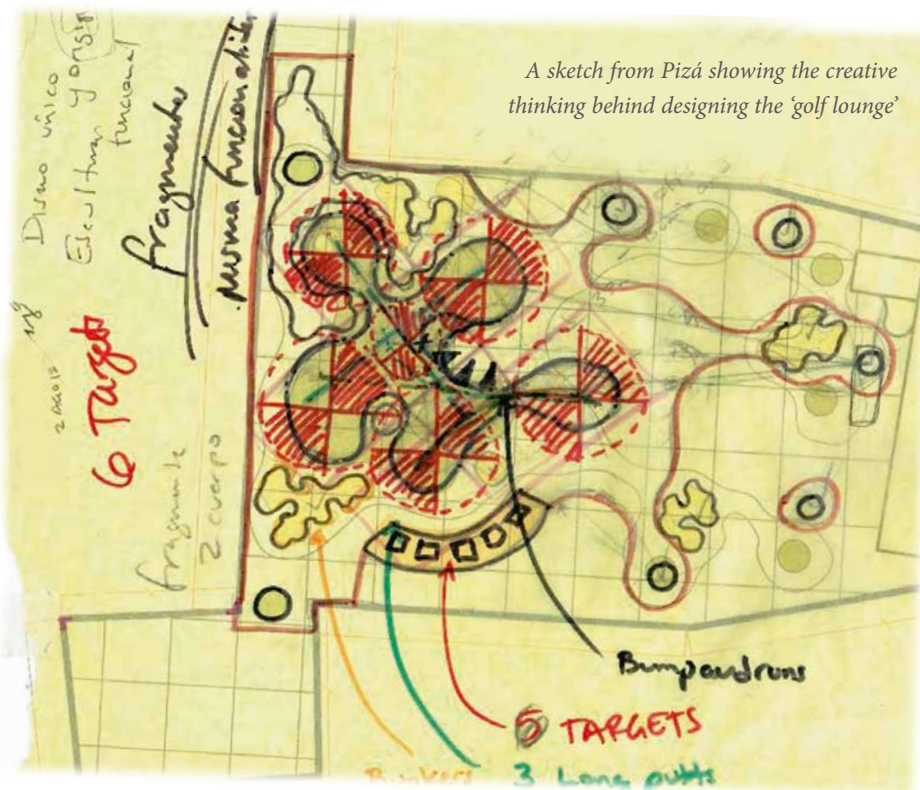 A sketch from Pizá showing the creative
thinking behind designing the ‘golf lounge’
Diseno único
funcional
fragmentos
funcional
6 Targets
fragmento
2 cuerpo
Bumpandruns
5 TARGETS
Bunkers
3 Long putts